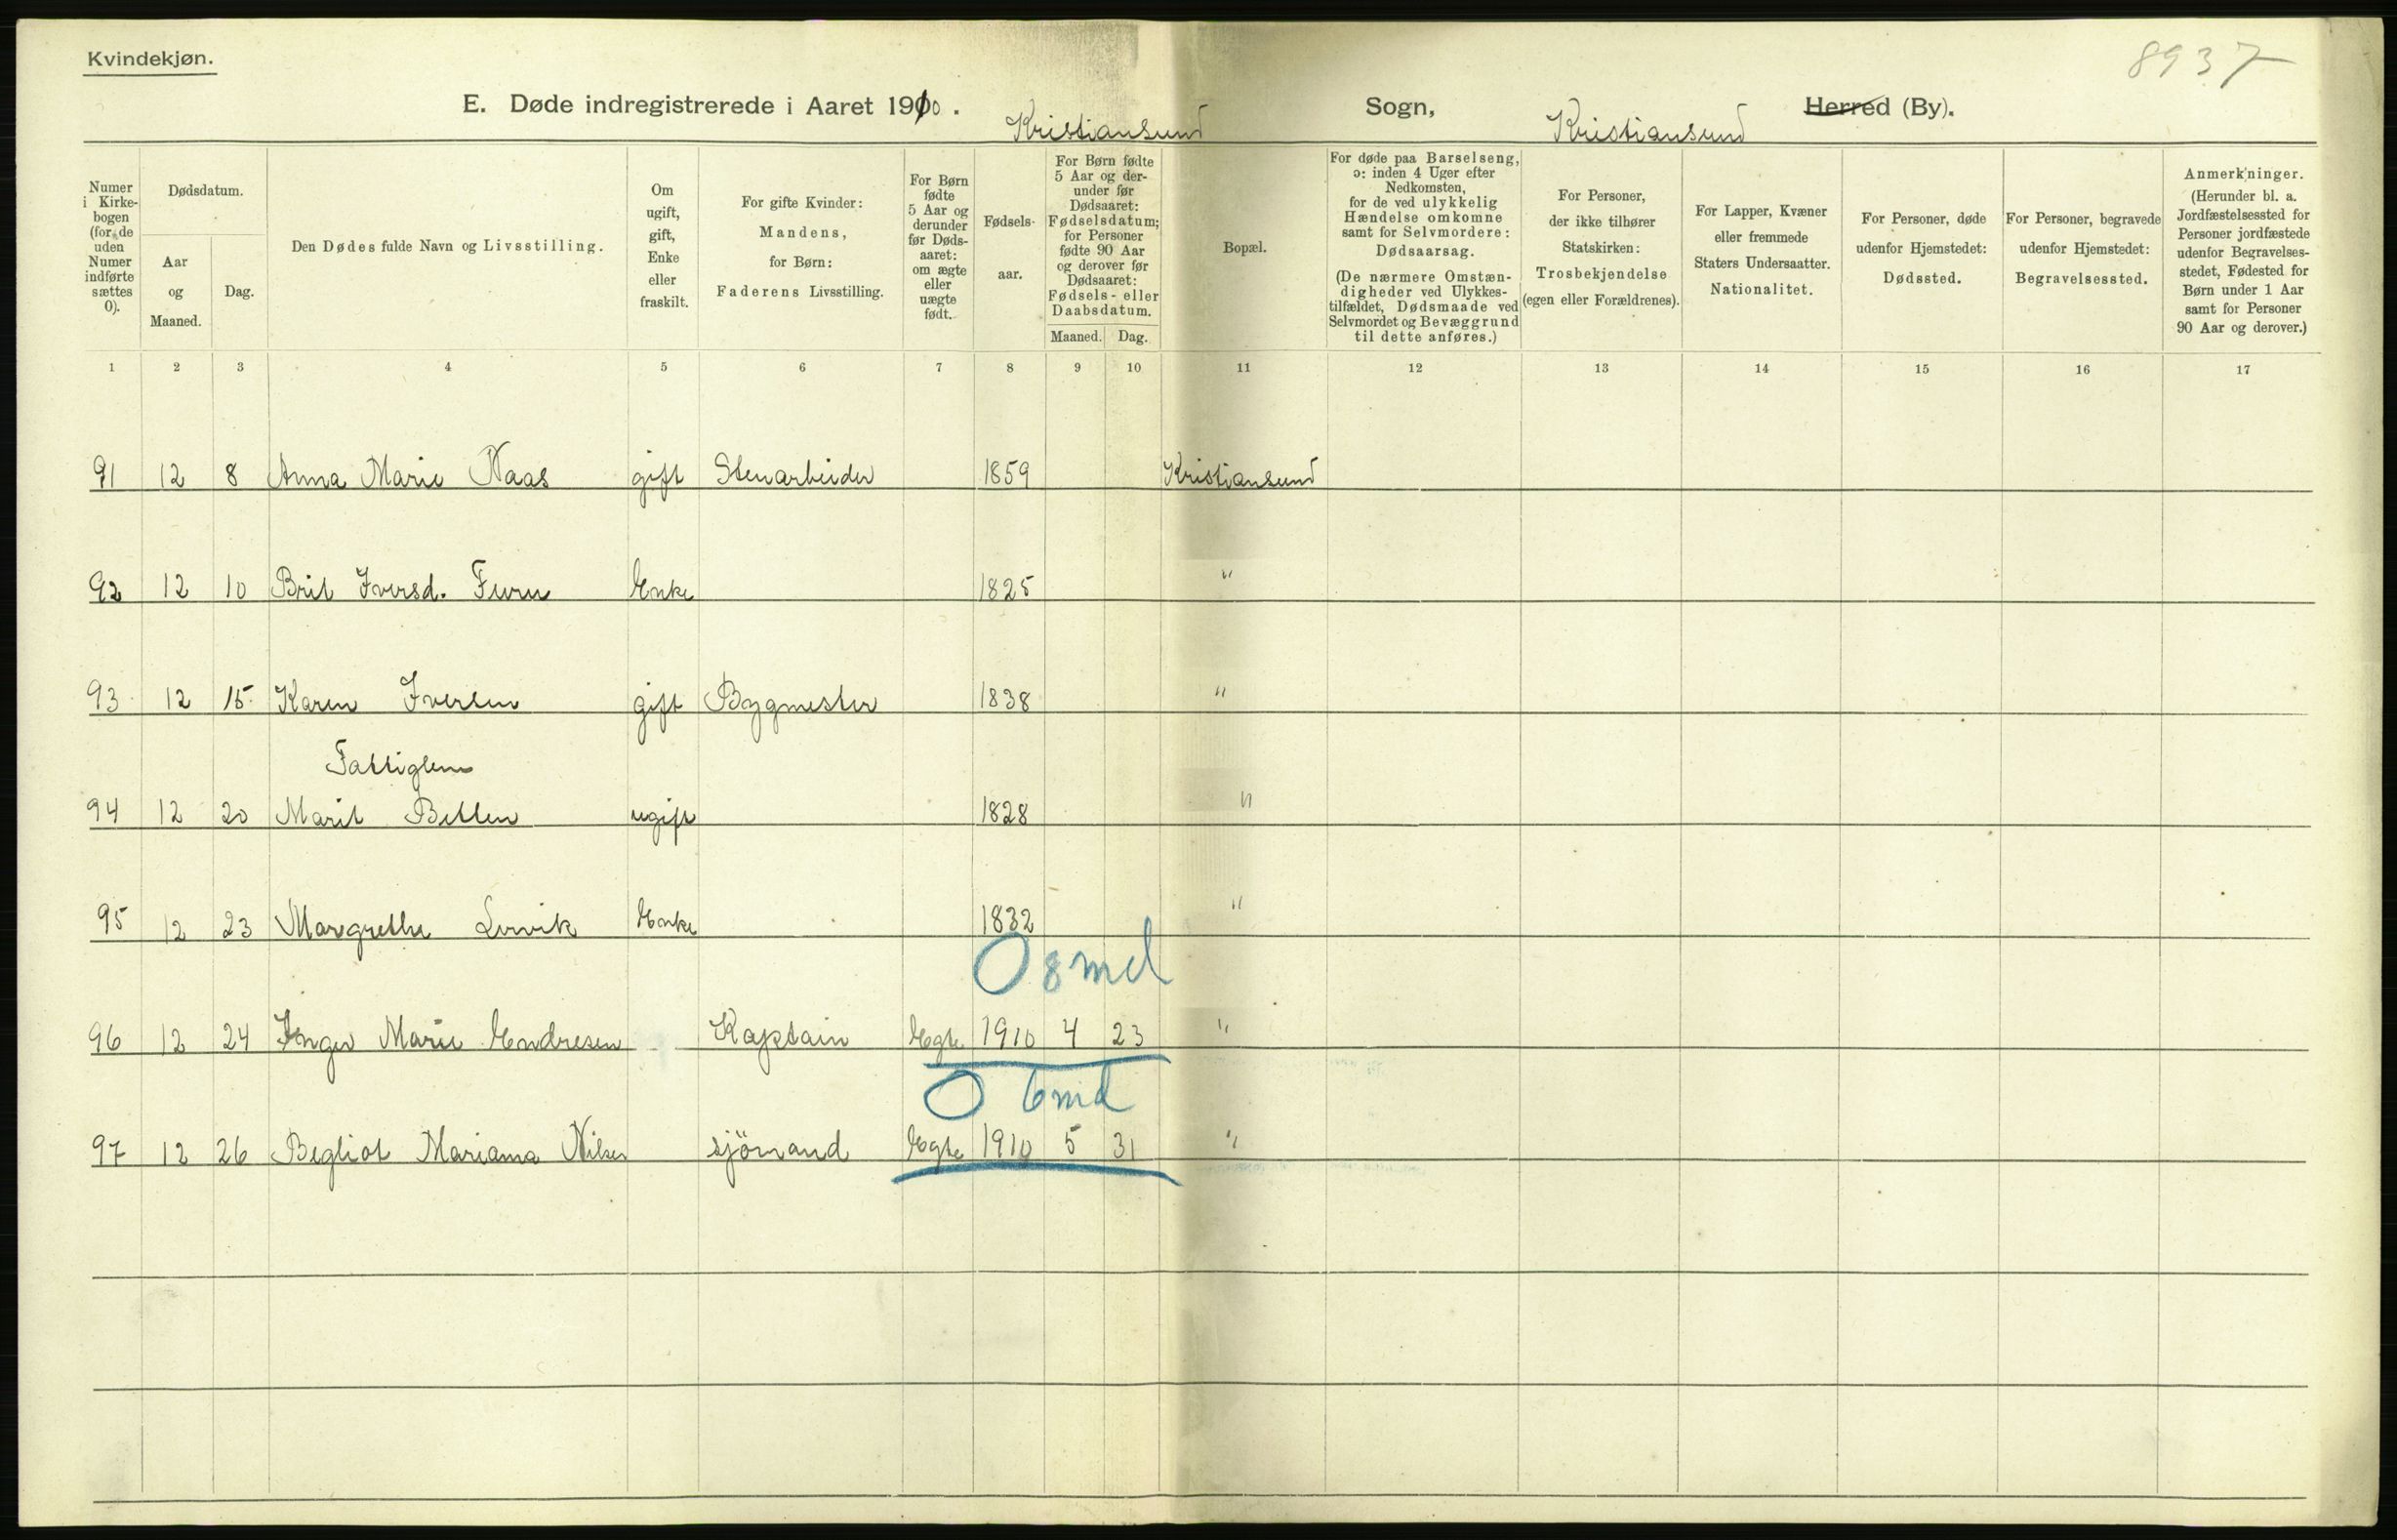 Kvindekjøn.
8937
E. Døde indregistrerede i Aaret 1910. Kristiansund Sogn, Kristiansund Herred (By).
Numer i Kirkebogen (for de uden Numer indførte sættes 0).
Dødsdatum.
Aar og Maaned.
Dag.
Den Dødes fulde Navn og Livsstilling.
Om ugift, gift, Enke eller fraskilt.
For gifte Kvinder: Mandens, for Børn: Faderens Livsstilling.
For Børn fødte 5 Aar og derunder før Dødsaaret: om ægte eller uægte født.
Fødselsaar.
For Børn fødte 5 Aar og derunder før Dødsaaret: Fødselsdatum; for Personer fødte 90 Aar og derover før Dødsaaret: Fødsels- eller Daabsdatum.
Maaned. Dag.
Bopæl.
For døde paa Barselseng, ɔ: inden 4 Uger efter Nedkomsten, for de ved ulykkelig Hændelse omkomne samt for Selvmordere: Dødsaarsag.
(De nærmere Omstændigheder ved Ulykkestilfældet, Dødsmaade ved Selvmordet og Bevæggrund til dette anføres.)
For Personer, der ikke tilhører Statskirken: Trosbekjendelse (egen eller Forældrenes).
For Lapper, Kvæner eller fremmede Staters Undersaatter. Nationalitet.
For Personer, døde udenfor Hjemstedet: Dødssted.
For Personer, begravede udenfor Hjemstedet: Begravelsessted.
Anmerkninger.
(Herunder bl. a. Jordfæstelsessted for Personer jordfæstede udenfor Begravelsesstedet, Fødested for Børn under 1 Aar samt for Personer 90 Aar og derover.)
1 2 3 4 5 6 7 8 9 10 11 12 13 14 15 16 17
91 12 8 Anna Marie Naas gift Stenarbeider 1859 Kristiansund
92 12 10 Brit Iversd. Furu Enke 1825 "
93 12 15 Karen Iversen gift Bygmester 1838 "
Fattiglem
94 12 20 Marit Betten ugift 1828 "
95 12 23 Margrethe Lervik Enke 1832 "
0 8 md
96 12 24 Inger Marie Endresen Kaptain Egte 1910 4 23 "
0 6 md
97 12 26 Begliot Mariama Nilsen sjömand Egte 1910 5 31 "